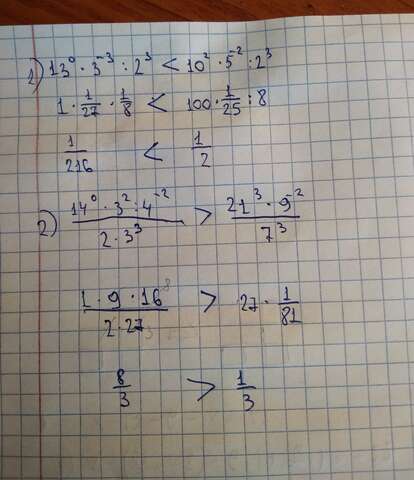 1) 13⁰ · 3⁻³ : 2³ < 10² · 5⁻² : 2³
1 · 1/27 · 1/8 < 100 · 1/25 : 8
1/216 < 1/2
2) (14⁰ · 3² : 4⁻²)/(2 · 3³) > (21³ · 9⁻²)/7³
(1 · 9 · 16⁸)/(2 · 27) > 27 · 1/81
8/3 > 1/3